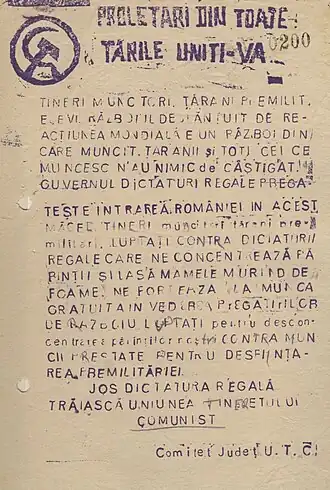 PROLETARI DIN TOATE
ŢĂRILE UNITI-VĂ
0200
TINERI MUNCITORI, ŢĂRANI PREMILIT.
ELEVI. RĂZBOIUL DEZLĂNŢUIT DE RE-
ACŢIUNEA MONDIALĂ E UN RĂZBOI DIN
CARE MUNCIT. ŢĂRANII şi TOŢI CEI CE
MUNCESC N'AU NIMIC de CÂŞTIGAT.
GUVERNUL DICTATURI REGALE PREGĂ-
TEŞTE INTRAREA ROMÂNIEI IN ACEST
MĂCEL. TINERI muncitori ţărani pre-
militari, LUPTAŢI CONTRA DICIATURII
REGALE CARE NE CONCENTREAZĂ PĂ
RINŢII ŞI LASĂ MAMELE MURIND DE
FOAME. NE FORŢEAZĂ LA MUNCĂ
GRATUITĂ IN VEDEREA PREGĂTIRILOR
DE RĂZBOIU LUPTAŢI pentru descon-
centrarea părinţilor noştri CONTRA MUN-
CII PRESTATE PENTRU DESFIINŢA-
REA PREMILITĂRIEI.
JOS DICTATURA REGALĂ
TRĂIASCĂ UNIUNEA TINERETULUI
COMUNIST
Comitet Judeţ U.T.C.